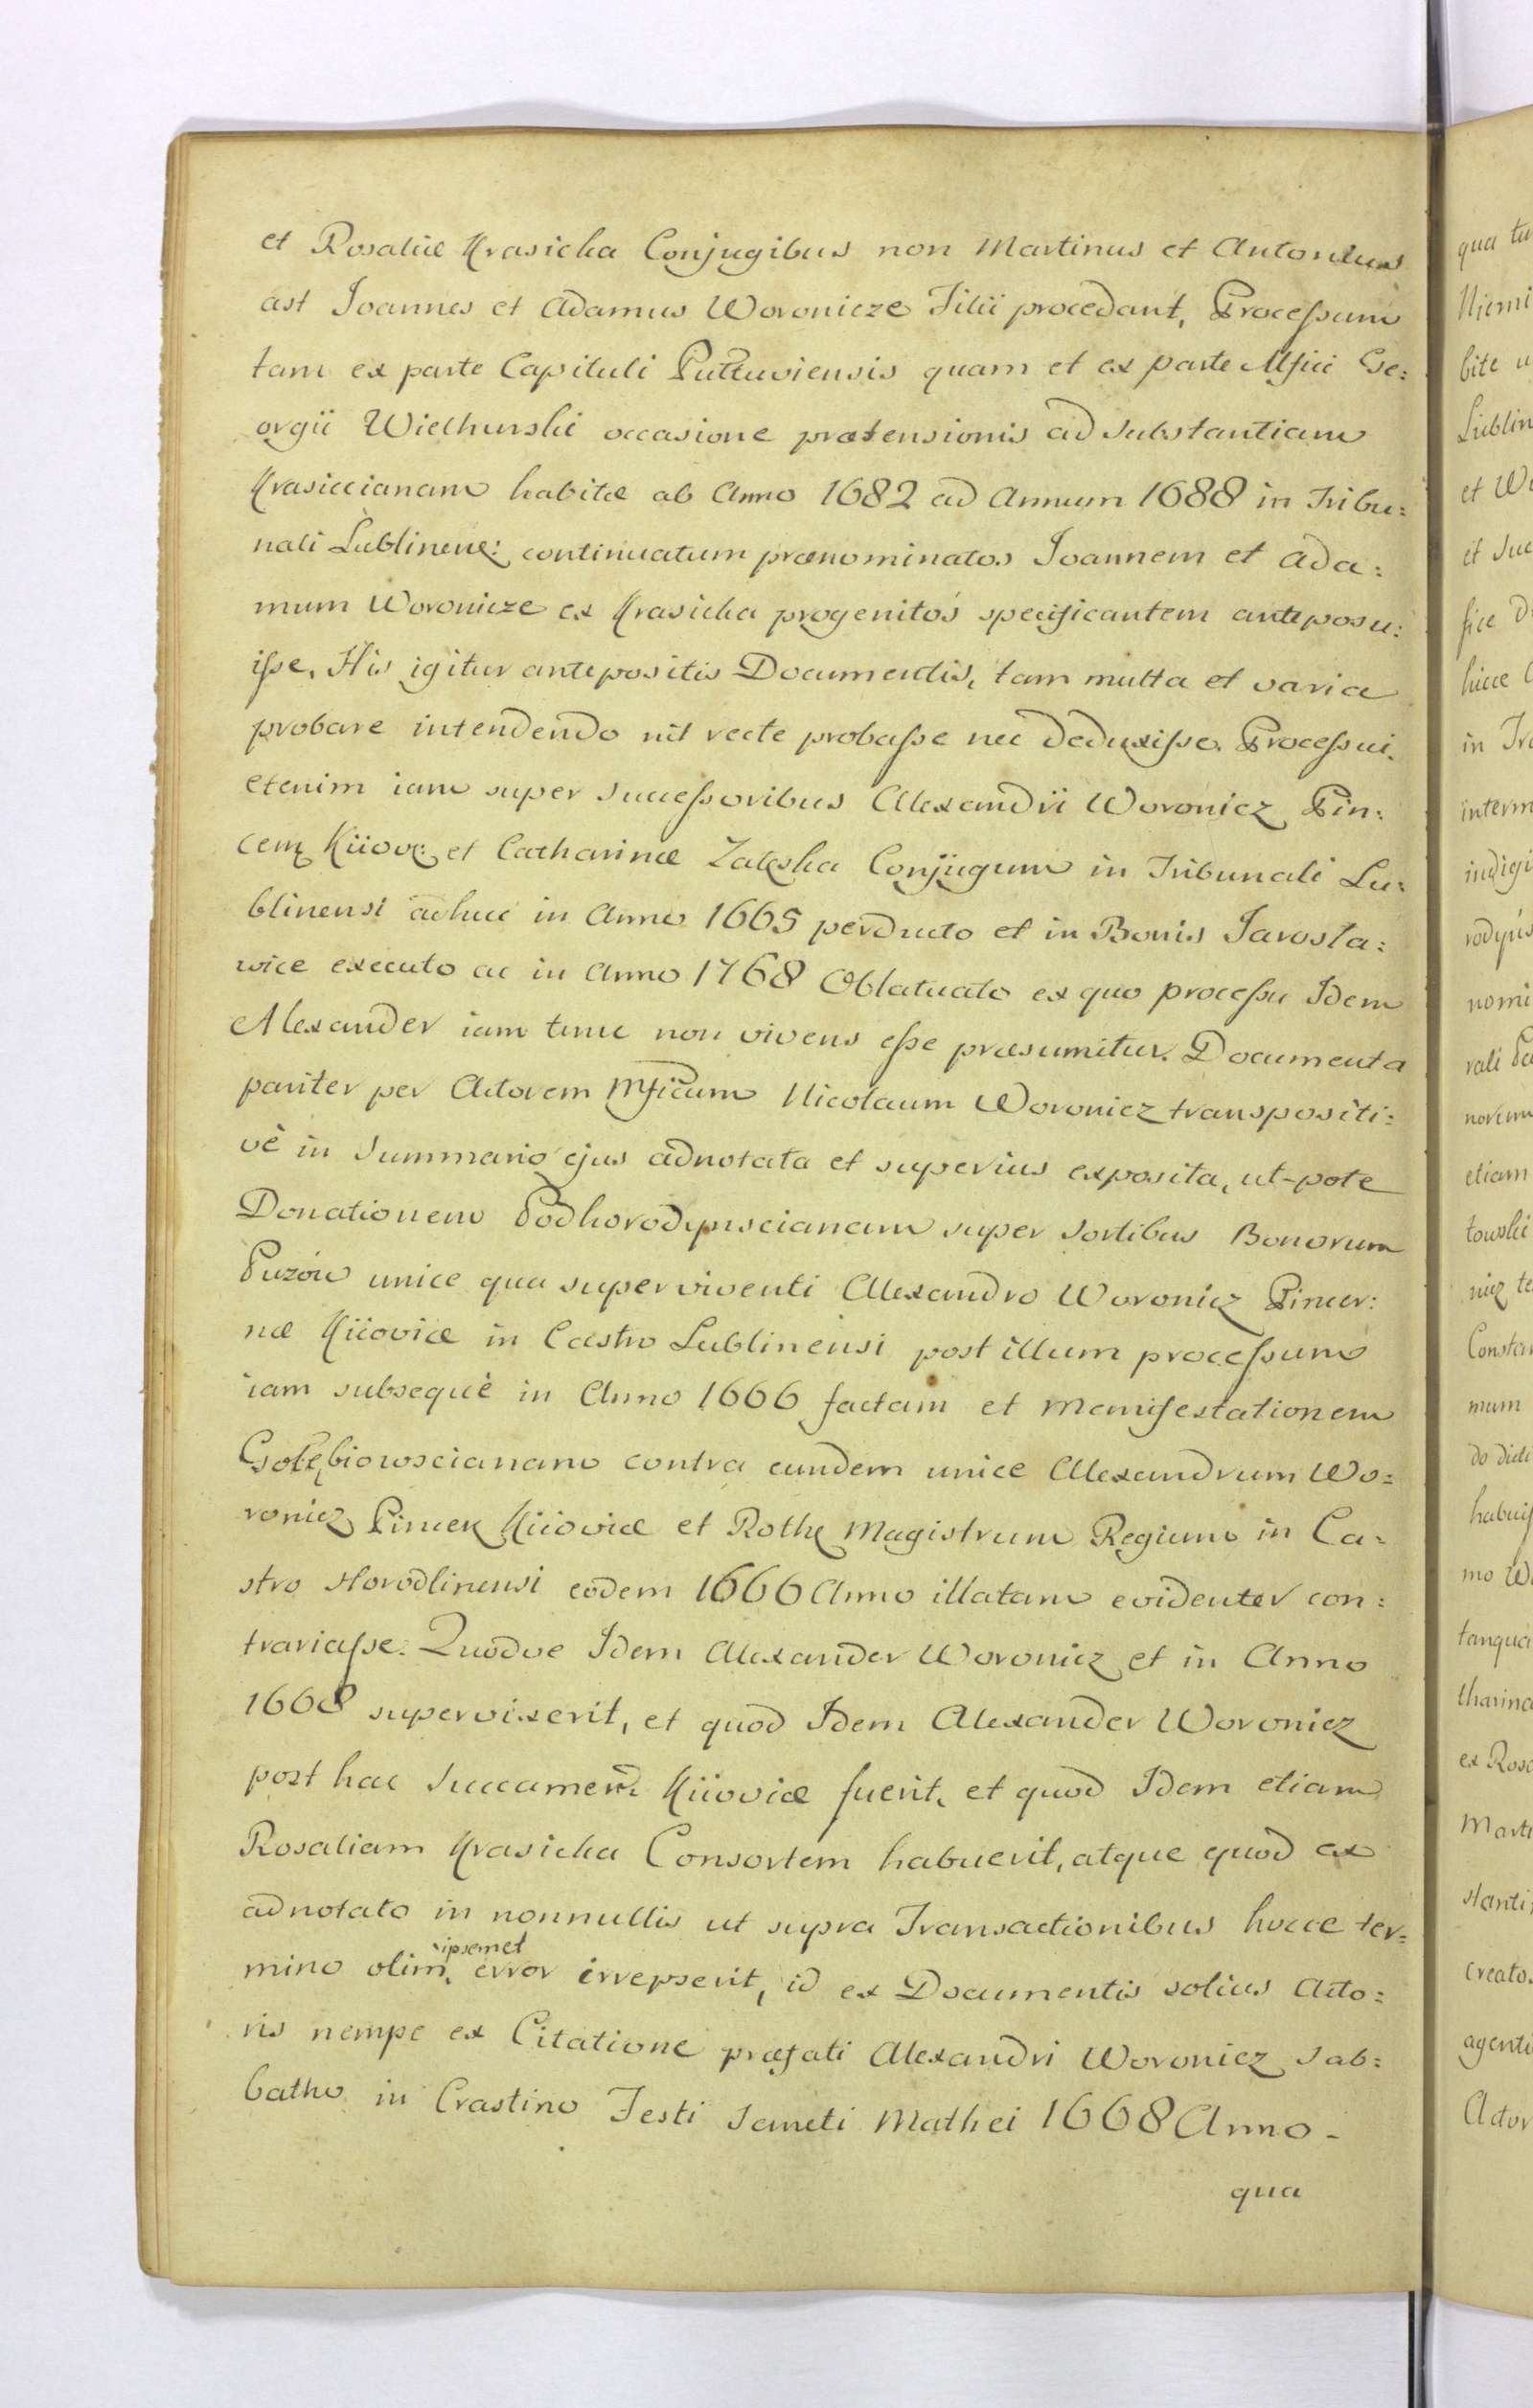 et Rosaliæ Krasicka Conjugibus non Martinus et Antonius
ast Joannes et Adamus Woronicze Filii procedant, Processum
tam ex parte Capituli Pułtuviensis quam et ex parte Mfici Ge:
orgii Wielhurski occasione prætensionis ad Substantiam
Krasiccianam habitæ ab Anno 1682 ad Annum 1688 in Tribu:
nali Lublinen: continuatum prænominatos Joannem et Ada:
mum Woronicze ex Krasicka progenitos specificantem anteposu:
iſse. His igitur antepositis Documentis, tam multa et varia
probare intendendo nil recte probaſse nec deduxiſse. Proceſsui
etenim iam super Succeſsoribus Alexandri Woronicz Pin:
cern Kiiov: et Catharinæ Zaleska Conjugum in Tribunali Lu:
blinensi adhuc in Anno 1665 perducto et in Bonis Jarosła:
wice executo ac in Anno 1768 Oblatuato ex quo proceſsu Idem
Alexander iam tunc non vivens eſse præsumitur. Documenta
pariter per Actorem Mficum Nicolaum Woronicz transpositi:
vè in Summario ejus adnotata et superius exposita, ut-pote
Donationem Podhorodynscianam super Sortibus Bonorum
Puzów unice qua superviventi Alexandro Woronicz Pincer:
næ Kiioviæ in Castro Lublinensi post illum proceſsum
iam subsequè in Anno 1666 factam et Manifestationem
Gołębiowscianam contra eundem unice Alexandrum Wo:
ronicz Pincern Kiioviæ et Rothæ Magistrum Regium in Ca:
stro Horodlinensi eodem 1666 Anno illatam evidenter con:
trariaſse. Quodve Idem Alexander Woronicz et in Anno
1668 supervixerit, et quod Idem Alexander Woronicz
post hac Succamerd. Kiioviæ fuerit, et quod Idem etiam
Rosaliam Krasicka Consortem habuerit, atque quod ex
adnotato in nonnullis ut supra Transactionibus hocce ter:
ipsemet
mino olim, error irrepserit, id ex Documentis solius Acto:
ris nempe ex Citatione præfati Alexandri Woronicz Sab:
batho in Crastino Festi Sancti Mathei 1668 Anno -
qua